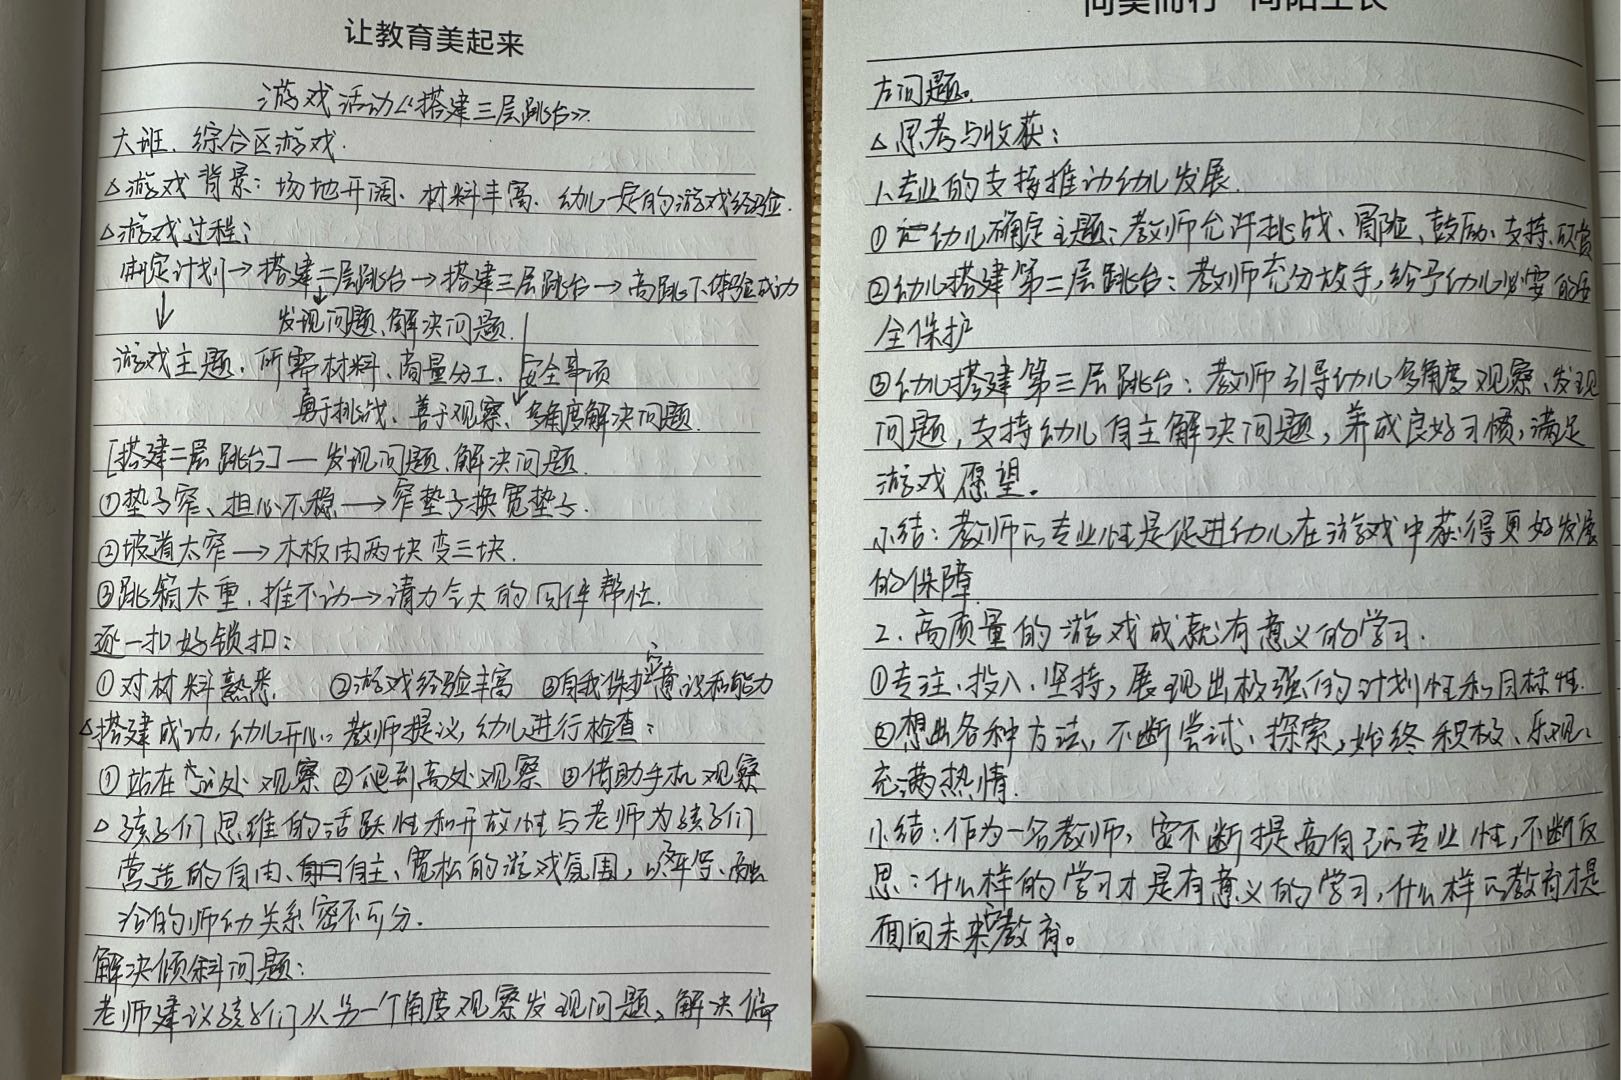 让教育美起来
游戏活动《搭建三层跳台》
大班、综合区游戏.
△游戏背景：场地开阔、材料丰富、幼儿一定的游戏经验.
△游戏过程：
制定计划→搭建二层跳台→搭建三层跳台→高跳下体验成功
发现问题、解决问题.
游戏主题、所需材料、商量分工、安全事项
勇于挑战、善于观察、多角度解决问题.
[搭建二层跳台]—发现问题、解决问题.
①垫子窄、担心不稳→窄垫子换宽垫子.
②坡道太窄→木板由两块变三块.
③跳箱太重、推不动→请力气大的同伴帮忙.
逐一扣好锁扣：
①对材料熟悉. ②游戏经验丰富 ③自我保护的意识和能力
△搭建成功,幼儿开心。教师提议,幼儿进行检查：
①站在远处观察 ②爬到高处观察 ③借助手机观察
△孩子们思维的活跃性和开放性与老师为孩子们
营造的自由、自主、宽松的游戏氛围，以及平等、融
洽的师幼关系密不可分.
解决倾斜问题：
老师建议孩子们从另一个角度观察发现问题、解决偏
向美而行 向阳生长
左问题。
△思考与收获：
1、专业的支持推动幼儿发展.
①幼儿确定主题：教师允许挑战、冒险、鼓励、支持、欣赏
②幼儿搭建第二层跳台：教师充分放手,给予幼儿必要的安
全保护
③幼儿搭建第三层跳台：教师引导幼儿多角度观察、发现
问题,支持幼儿自主解决问题,养成良好习惯,满足
游戏愿望。
小结：教师的专业性是促进幼儿在游戏中获得更好发展
的保障.
2.高质量的游戏成就有意义的学习.
①专注、投入、坚持,展现出极强的计划性和目标性.
②想出各种方法,不断尝试、探索,始终积极、乐观、
充满热情.
小结：作为一名教师,要不断提高自己的专业性,不断反
思：什么样的学习才是有意义的学习,什么样的教育才是
面向未来的教育。